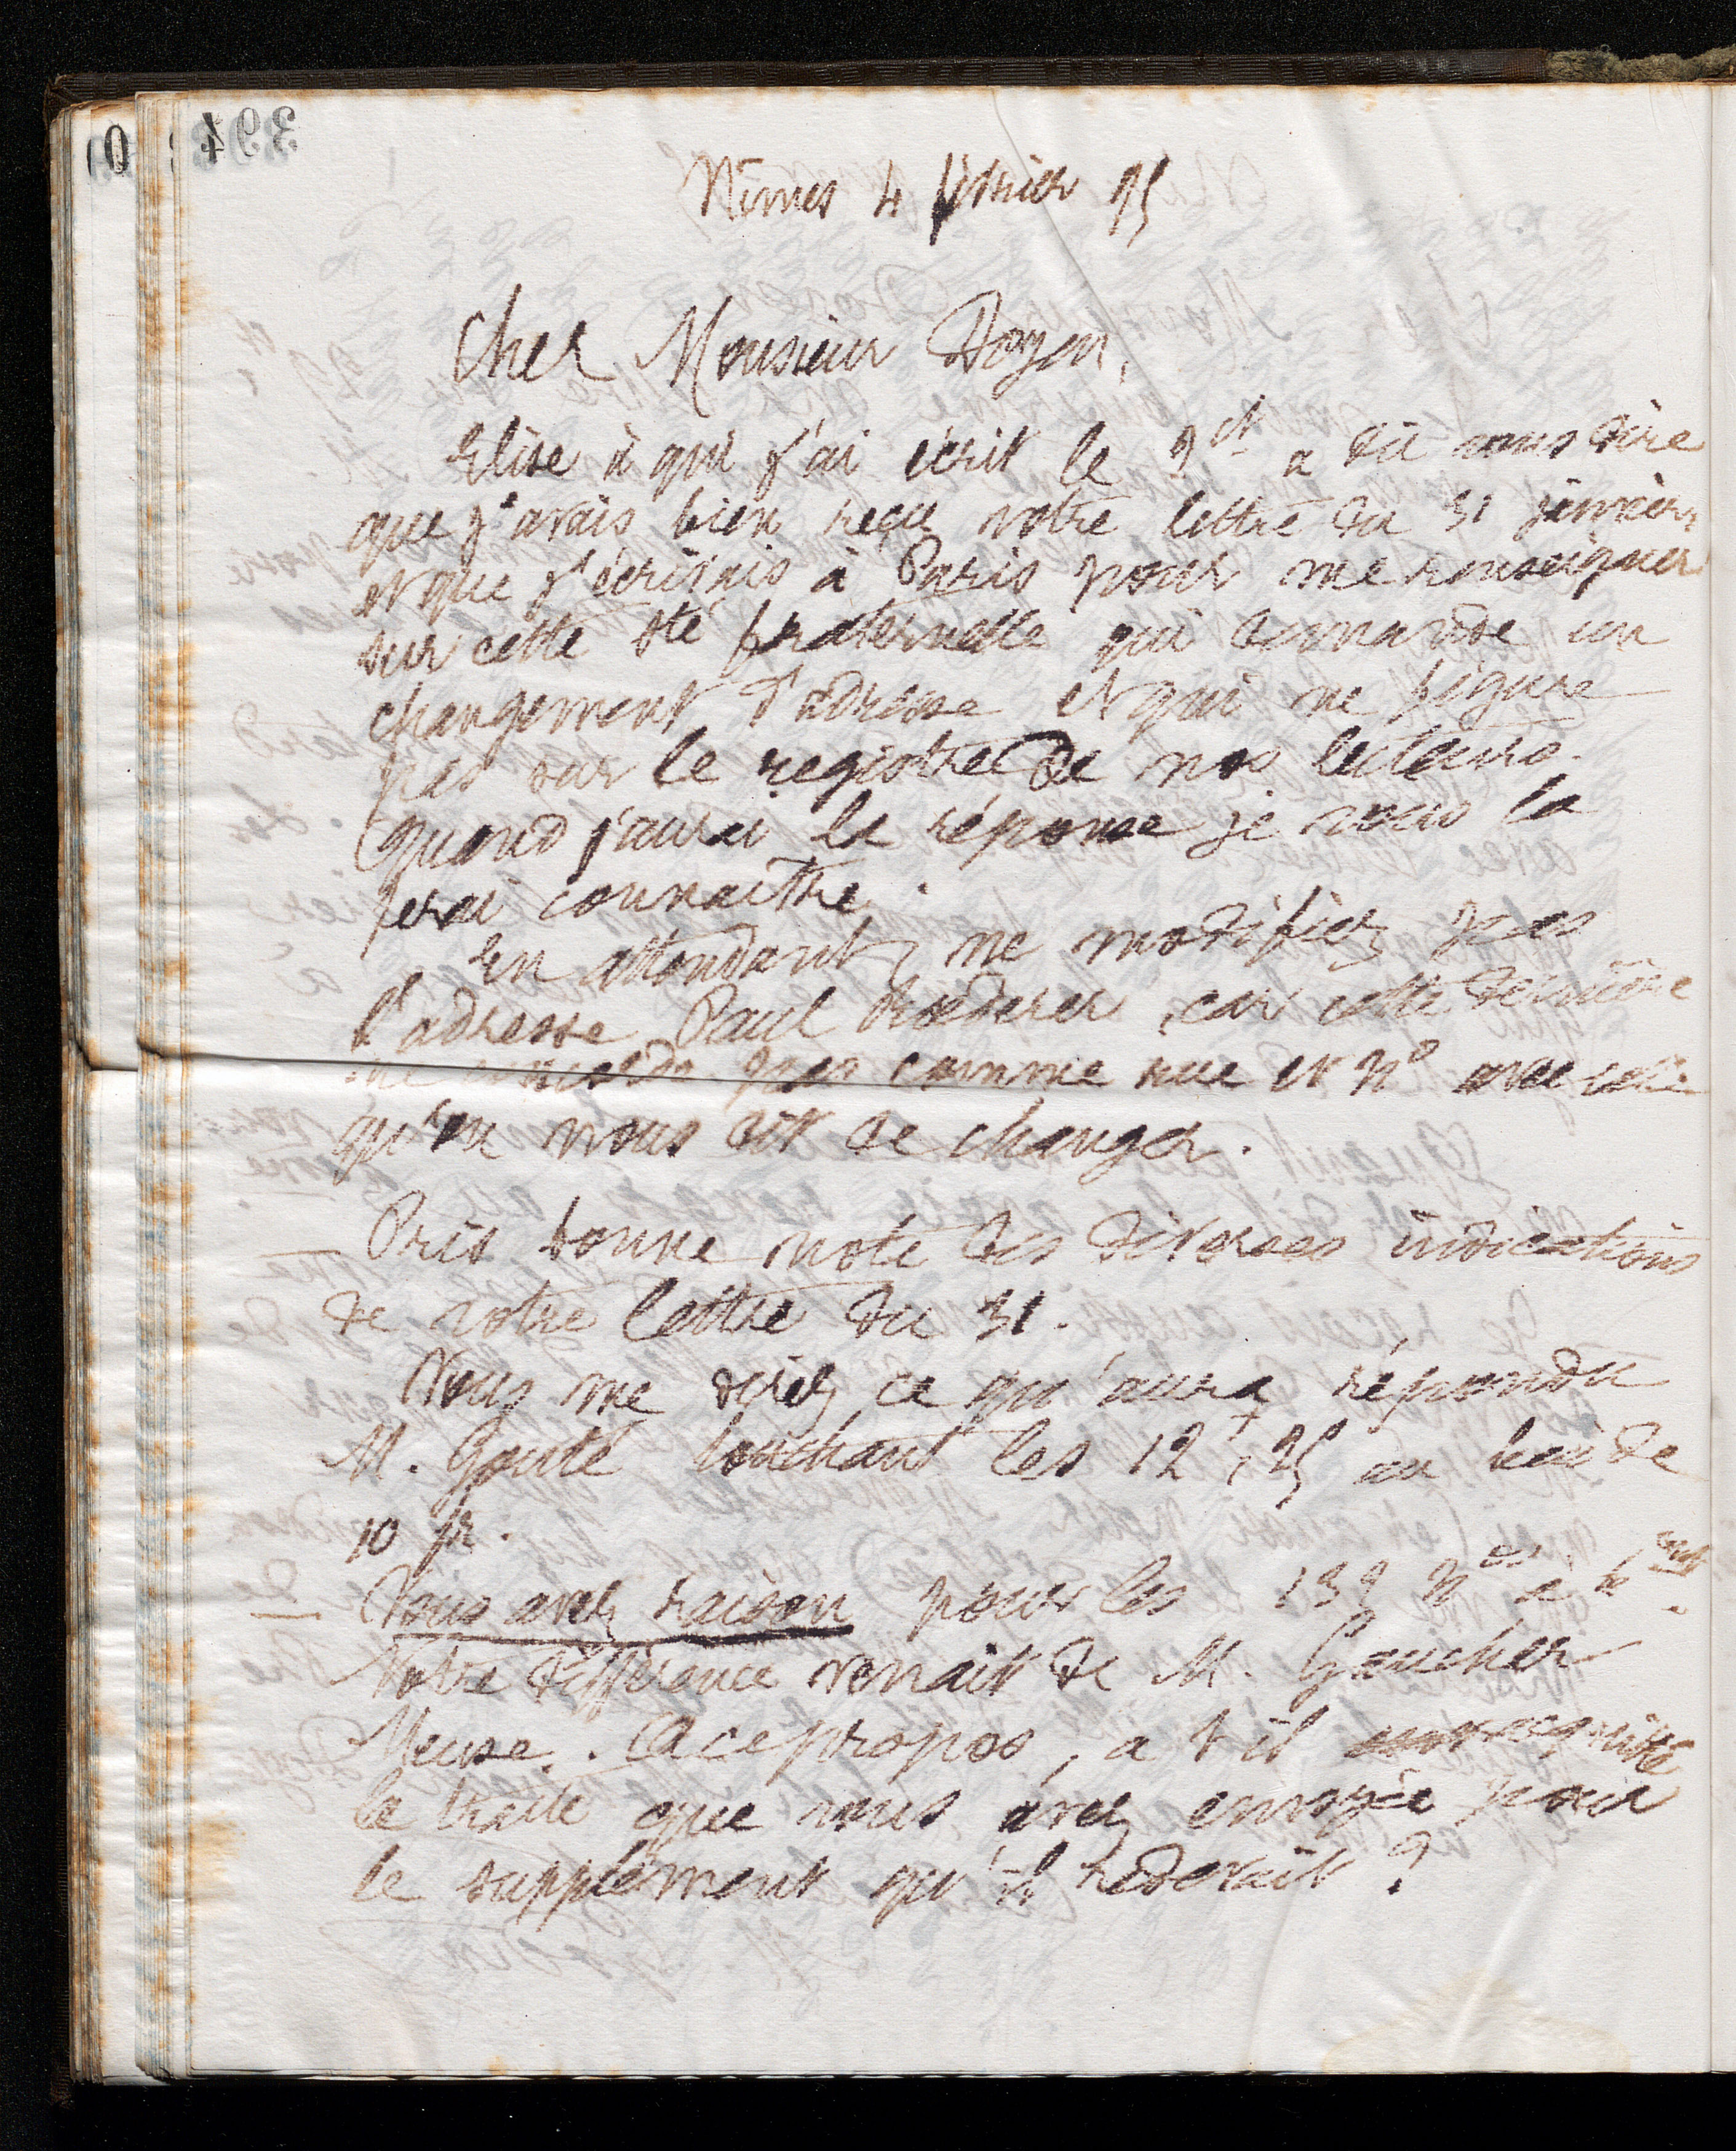 Nîmes 4 février 95
Cher Monsieur Doyen,
Elise à qui j'ai écrit le 2 ct a dû vous dire
que j'avais bien reçu votre lettre du 31 janvier,
et que j'écrivais à Paris pour me renseigner
sur cette sté fraternelle qui demande un
changement d'adresse et qui ne figure
pas sur le registre de nos lecteurs.
Quand j'aurai la réponse je vous la
ferai connaître.
En attendant, ne modifiez pas
l'adresse Paul , car cette dernière
ne concorde pas comme rue et no avec celle
qu'on nous dit de changer.
Pris bonne note des diverses indications
de votre lettre du 31.
Vous me direz ce qu'aura répondu
M. Gouté touchant les 12 f, 25 au lieu de
10 fr.
Vous avez raison pour les 139 Nos à
Notre différence venait de M. Gaucher
Meuse. A ce propos, a t il acquitté
la traite que vous avez envoyée pour
le supplément qu'il redevait ?
394